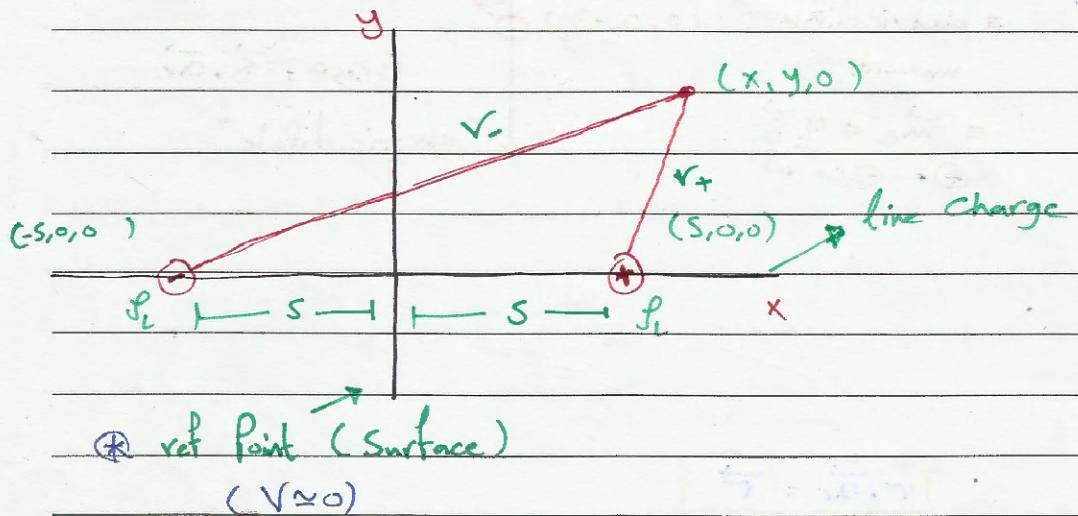 y
(x, y, 0)
r-
r+
(-s,0,0)
(s,0,0)
line charge
ρL
s
s
ρL
x
* ref Point (Surface)
(V≃0)